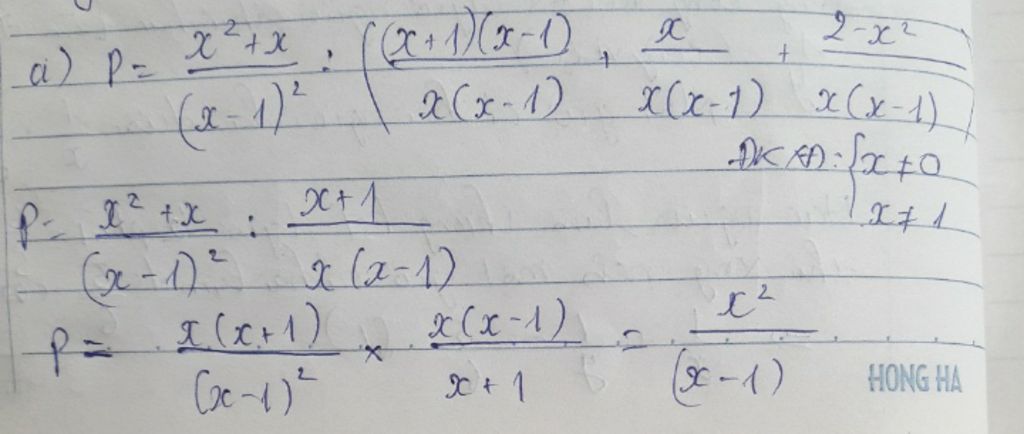 a) P = \frac{x^2+x}{(x-1)^2} : \left( \frac{(x+1)(x-1)}{x(x-1)} + \frac{x}{x(x-1)} + \frac{2-x^2}{x(x-1)} \right)
ĐKXĐ: \begin{cases} x \neq 0 \\ x \neq 1 \end{cases}
P = \frac{x^2+x}{(x-1)^2} : \frac{x+1}{x(x-1)}
P = \frac{x(x+1)}{(x-1)^2} \times \frac{x(x-1)}{x+1} = \frac{x^2}{(x-1)}
HONG HA